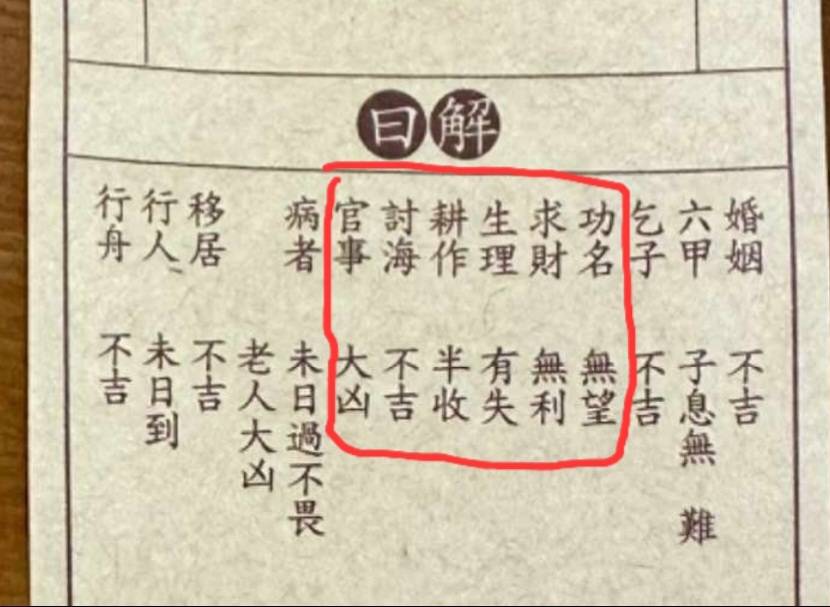 解曰
婚姻 不吉
六甲 子息無 難
乞子 不吉
功名 無望
求財 無利
生理 有失
耕作 半收
討海 不吉
官事 大凶
病者 未日過不畏
老人大凶
移居 不吉
行人 未日到
行舟 不吉